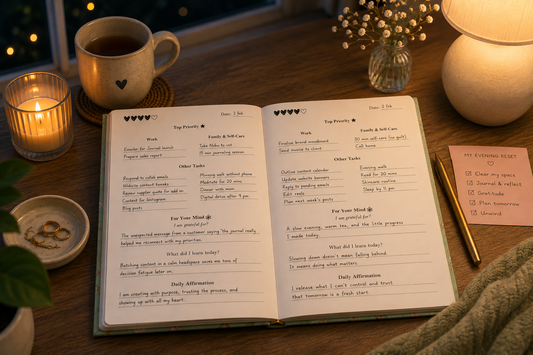 Date: 2 Feb
Top Priority
Work
Family & Self-Care
Emailer for Journal launch
Take to vet
Prepare sales report
15 min journaling session
Other Tasks
Respond to collab emails
Morning walk without phone
Website content tweaks
Meditate for 20 mins
Review supplier quote for add on
Dinner with mom
Content for Instagram
Digital detox after 9 pm
Blog posts
For Your Mind
I am grateful for?
The unexpected message from a customer saying 'the journal really
helped me reconnect with my priorities.
What did I learn today?
Batching content in a calm headspace saves me tons of
decision fatigue later on.
Daily Affirmation
I am creating with purpose, trusting the process, and
showing up with all my heart.
Date: Feb
Top Priority
Work
Family & Self-Care
Finalise brand moodboard
30 min self-care (no guilt)
Send invoice to client
Call home
Other Tasks
Outline content calendar
Evening walk
Update website banners
Read for 20 mins
Reply to pending emails
Skincare routine
Edit reels
Sleep by 11 pm
Plan next week's posts
For Your Mind
I am grateful for?
A slow evening, warm tea, and the little progress
I made today.
What did I learn today?
Slowing down doesn't mean falling behind.
It means doing what matters.
Daily Affirmation
I release what I can't control and trust
that tomorrow is a fresh start.
MY EVENING RESET
Clear my space
Journal & reflect
Gratitude
Plan tomorrow
Unwind